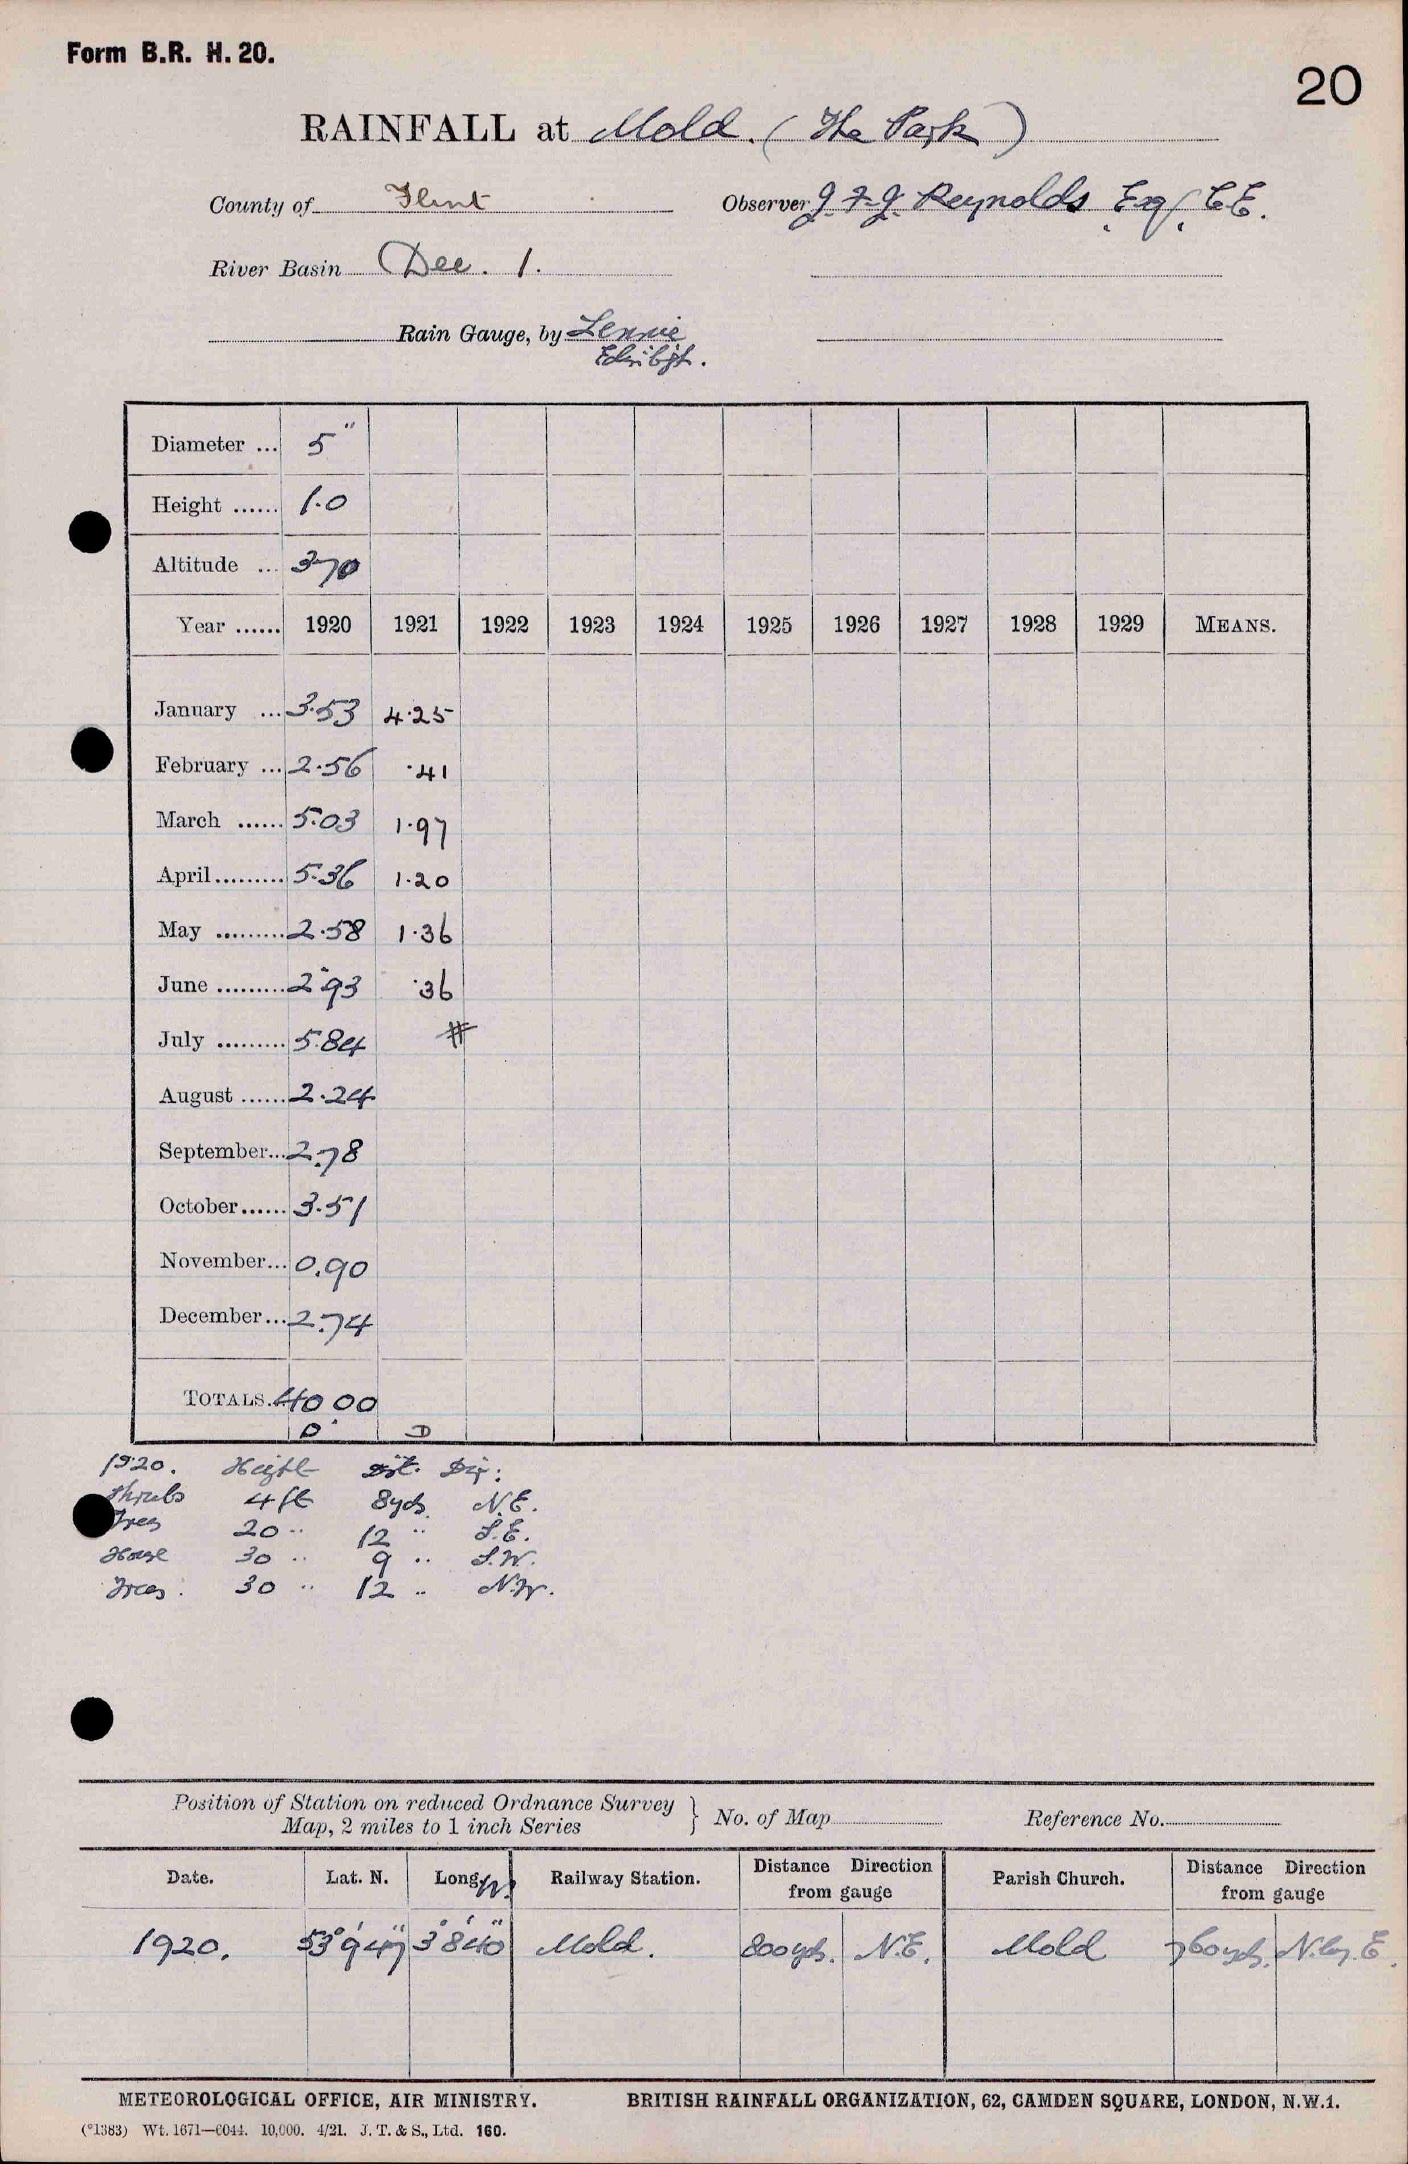 Form B.R. H. 20.
20
RAINFALL at Mold. (The Park)
County of Flint Observer J. F. J. Reynolds, Esq., C.E.
River Basin Dee. 1.
Rain Gauge, by Lennie
Edinbgh.
Diameter ... 5"
Height ...... 1.0
Altitude ... 370
Year ...... 1920 1921 1922 1923 1924 1925 1926 1927 1928 1929 MEANS.
January ... 3.53 4.25
February ... 2.56 .41
March ...... 5.03 1.97
April......... 5.36 1.20
May ......... 2.58 1.36
June ......... 2.93 .36
July ......... 5.84 #
August ...... 2.24
September... 2.78
October...... 3.51
November... 0.90
December... 2.74
TOTALS. 40.00
D D
1920. Height Dist. Dir:
Shrubs 4 ft 8 yds. N.E.
Trees 20 " 12 " S.E.
House 30 " 9 " S.W.
Trees. 30 " 12 " N.W.
Position of Station on reduced Ordnance Survey
Map, 2 miles to 1 inch Series } No. of Map Reference No.
Date. Lat. N. Long. W. Railway Station. Distance Direction from gauge Parish Church. Distance Direction from gauge
1920. 53° 9' 47" 3° 8' 40" Mold. 800 yds. N.E. Mold 760 yds. N. by E.
METEOROLOGICAL OFFICE, AIR MINISTRY. BRITISH RAINFALL ORGANIZATION, 62, CAMDEN SQUARE, LONDON, N.W.1.
(*1383) Wt. 1671—6044. 10,000. 4/21. J. T. & S., Ltd. 160.